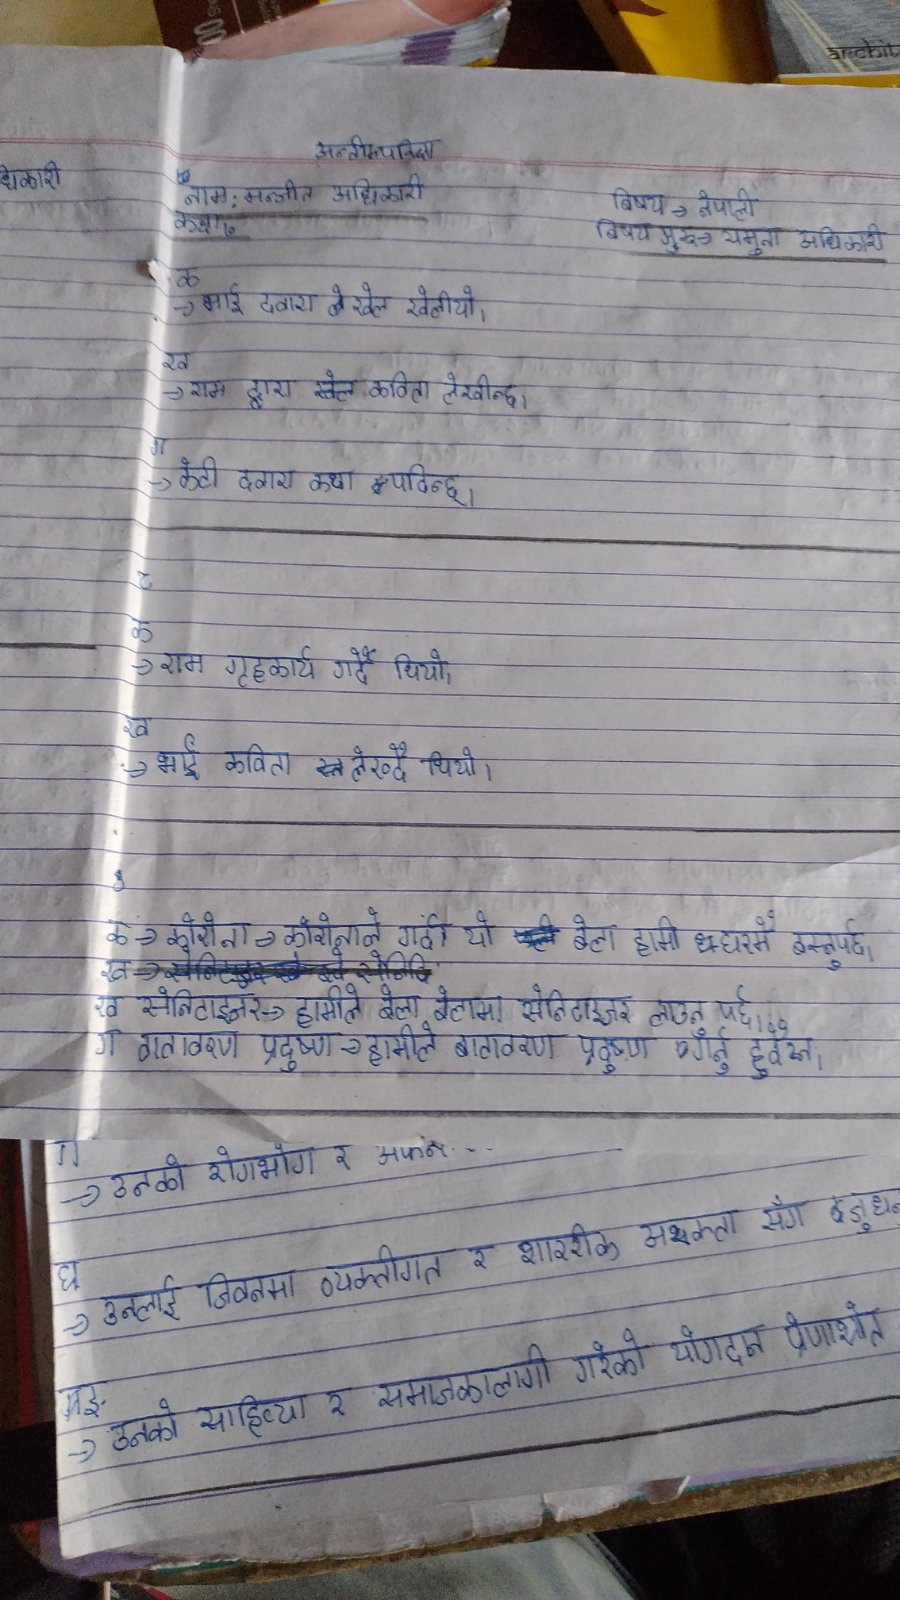 धिकारी
नाम: मन्जीत अधिकारी
विषय → नेपाली
कक्षा
विषय गुरु → यमुना अधिकारी
क
→ भाई दवारा खेल खेलीयो।
ख
→ राम द्वारा कविता लेखीन्छ।
ग
→ केटी दवारा कथा पढिन्छ।
२
क
→ राम गृहकार्य गर्दै थियो।
ख
→ भाई कविता लेख्दै थियो।
३
क → कोरोना → कोरोनाले गर्दा यो बेला हामी घरमै बस्नुपर्छ।
ख सेनिटाइजर → हामीले बेला बेलामा सेनिटाइजर लाउनु पर्छ।
ग वातावरण प्रदुष्ण → हामीले बातावरण प्रदुष्ण गर्नु हुदैन।
ग
→ उनको रोगभोग र
घ
→ उनलाई जिवनमा व्यक्तीगत र शारीरीक सँग
ङ
→ उनको साहित्य र समाजकालागी गरेको योगदान प्रेणाश्रोत